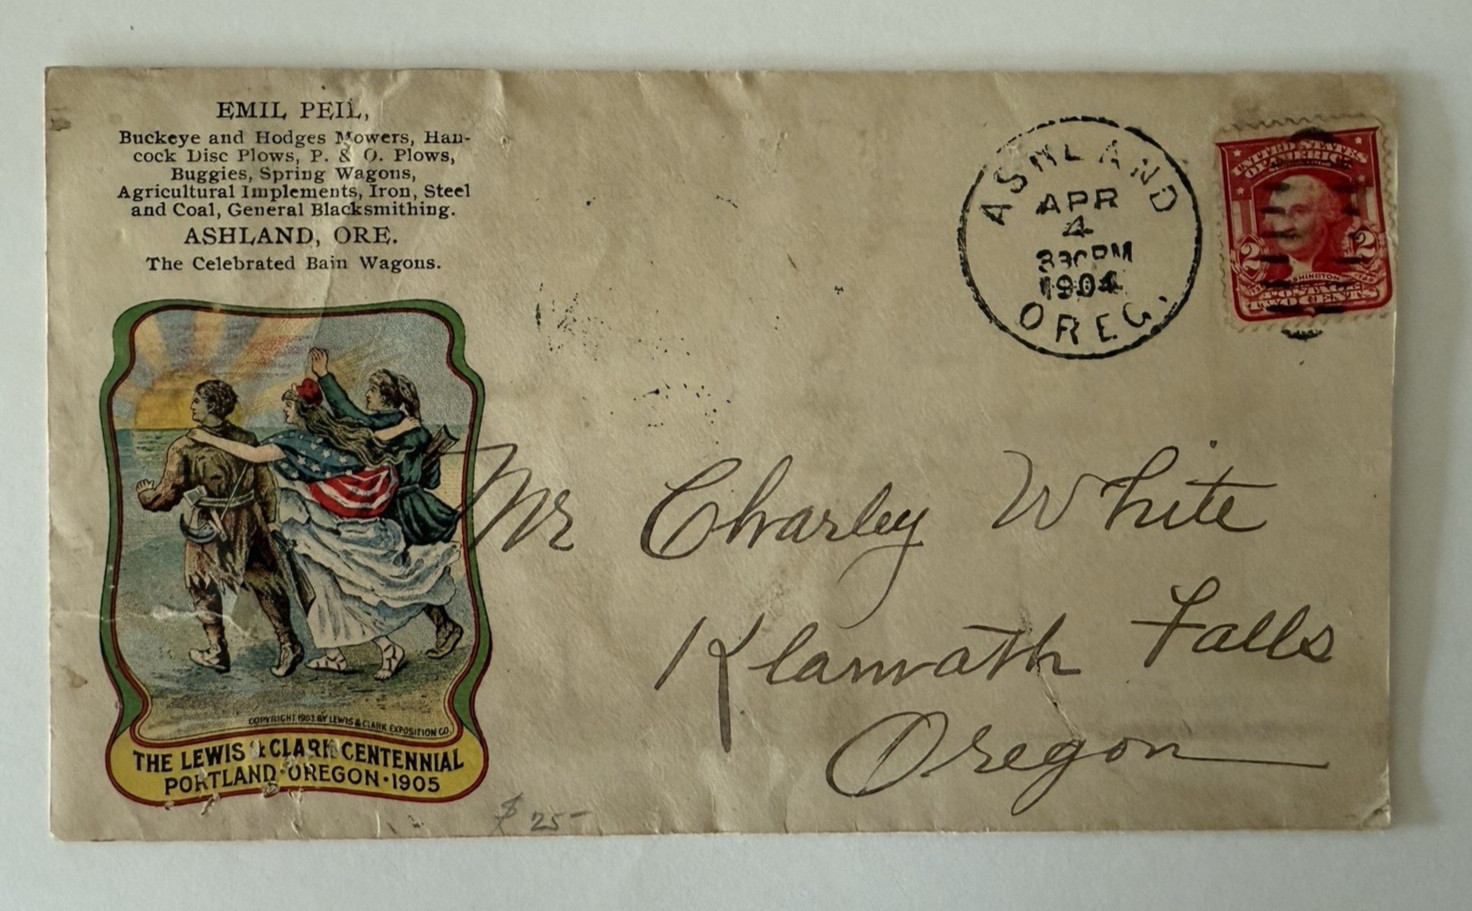 EMIL PEIL,
Buckeye and Hodges Mowers, Han-
cock Disc Plows, P. & O. Plows,
Buggies, Spring Wagons,
Agricultural Implements, Iron, Steel
and Coal, General Blacksmithing.
ASHLAND, ORE.
The Celebrated Bain Wagons.
ASHLAND
APR
4
330PM
1904
OREG.
UNITED STATES
OF AMERICA
2 2
WASHINGTON
TWO CENTS
Mr Charley White
Klamath Falls
Oregon
COPYRIGHT 1903 BY LEWIS & CLARK EXPOSITION CO.
THE LEWIS & CLARK CENTENNIAL
PORTLAND·OREGON·1905
$ 25-